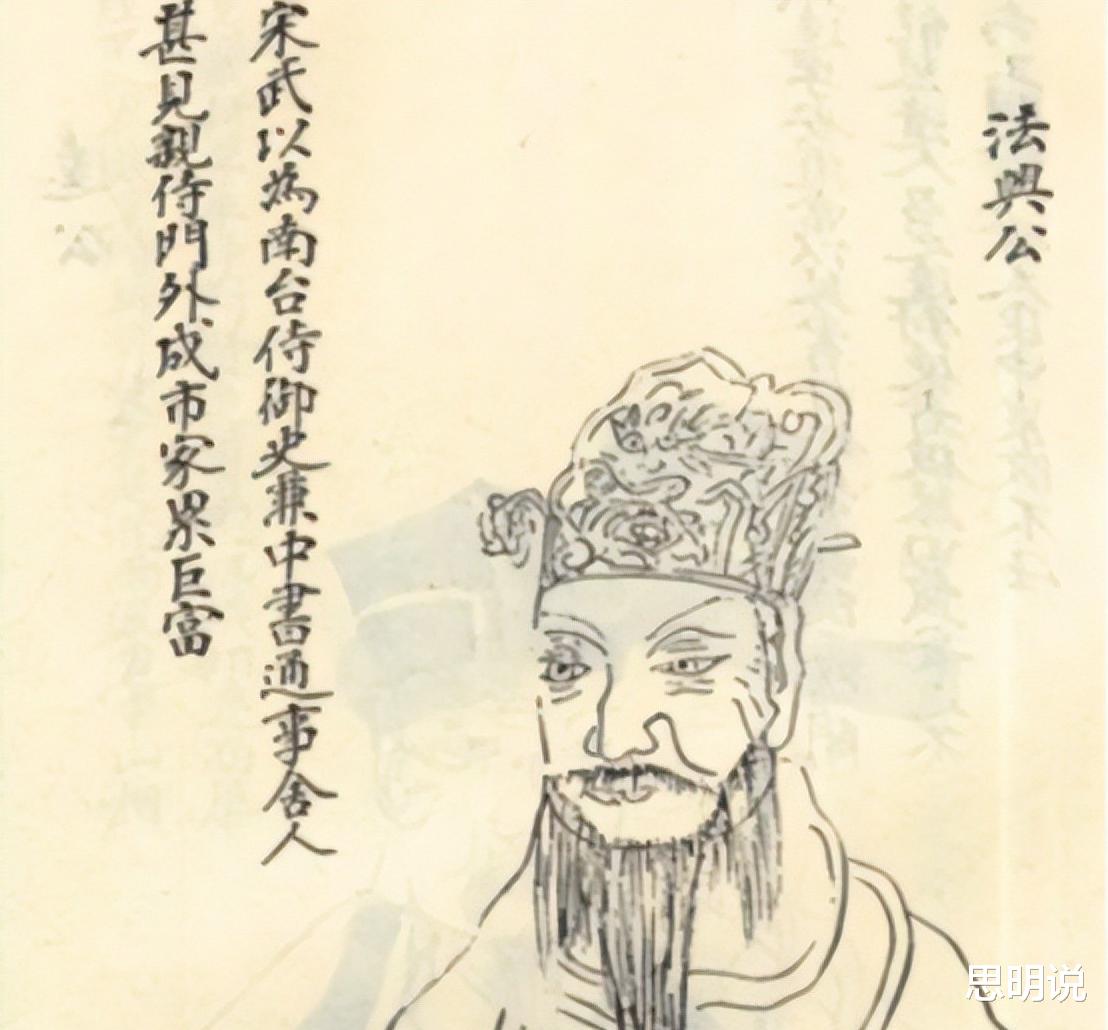 法興公
宋武以為南台侍御史兼中書通事舍人
甚見親侍門外成市家累巨富
思明说